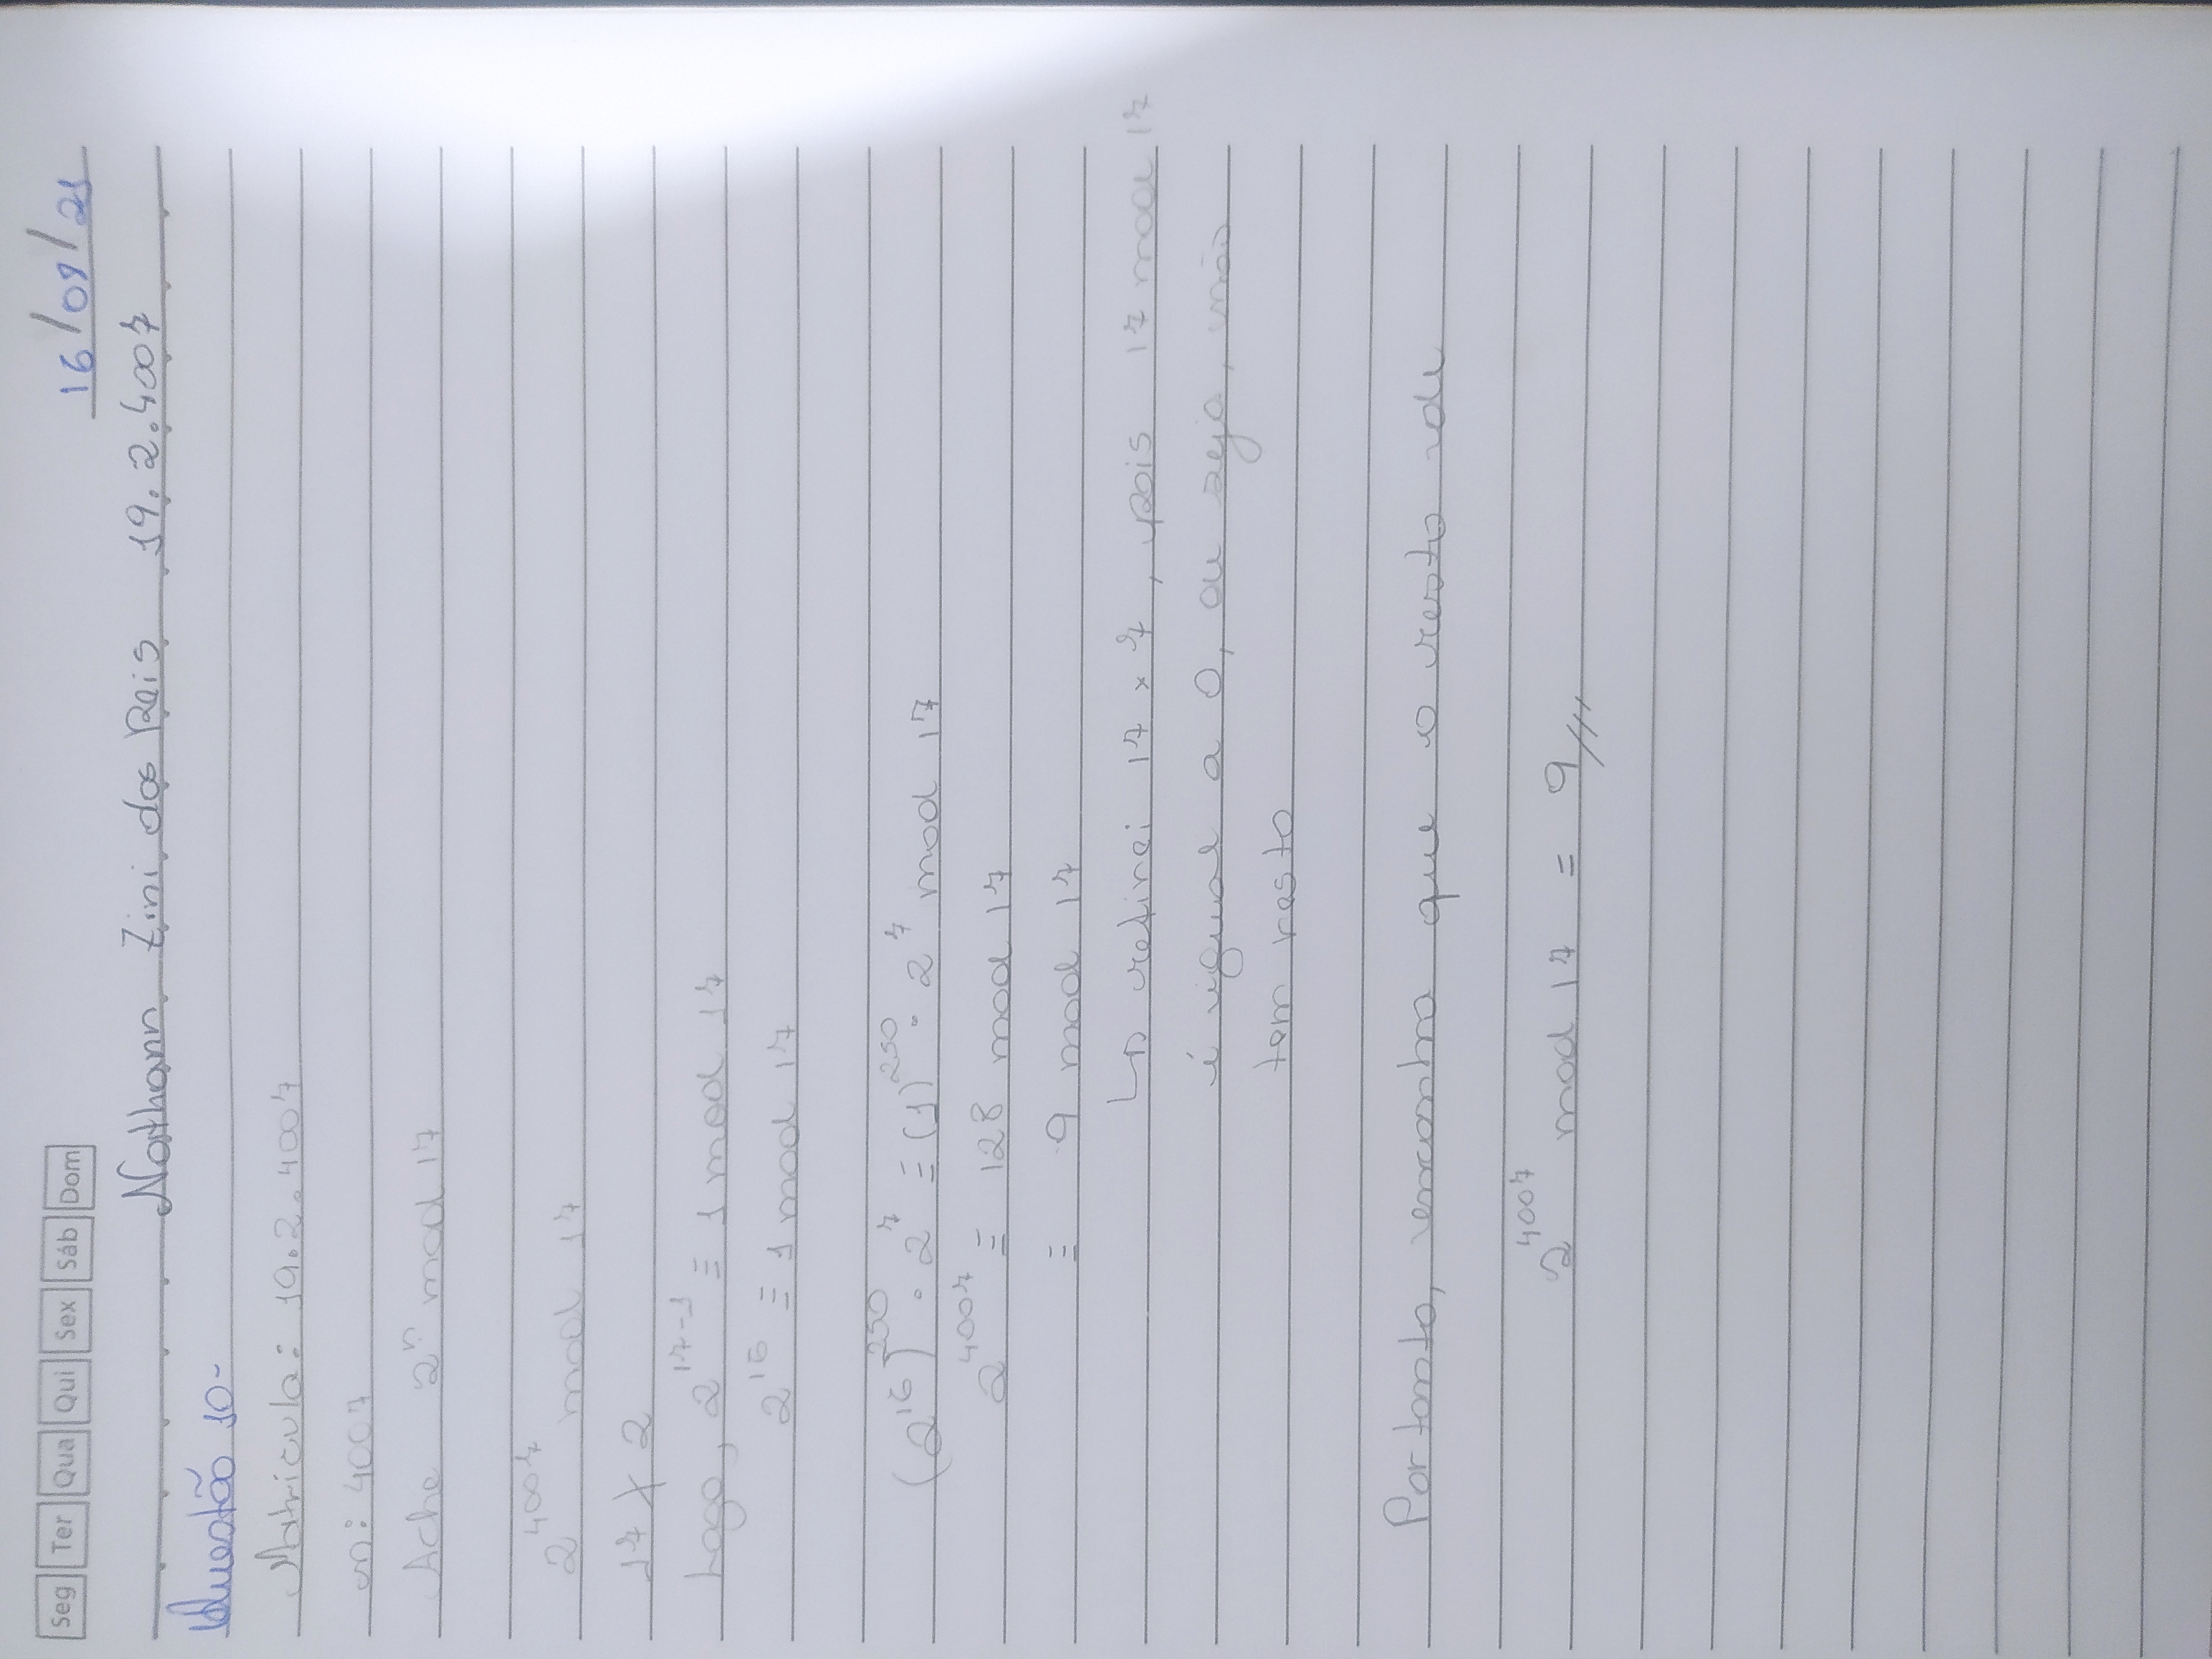 Seg Ter Qua Qui Sex Sáb Dom
16/09/21
Nathann Zini dos Reis 19.2.4007
Questão 10-
Matricula: 19.2.4007
n: 4007
Ache 2ⁿ mod 17
2⁴⁰⁰⁷ mod 17
17 ∤ 2
Logo, 2¹⁷⁻¹ ≡ 1 mod 17
2¹⁶ ≡ 1 mod 17
(2¹⁶)²⁵⁰ · 2⁷ ≡ (1)²⁵⁰ · 2⁷ mod 17
2⁴⁰⁰⁷ ≡ 128 mod 17
≡ 9 mod 17
↳ retirei 17 x 7, pois 17 mod 17
é igual a 0, ou seja, não
tem resto
Portanto, encontra que o resto de
2⁴⁰⁰⁷ mod 17 = 9